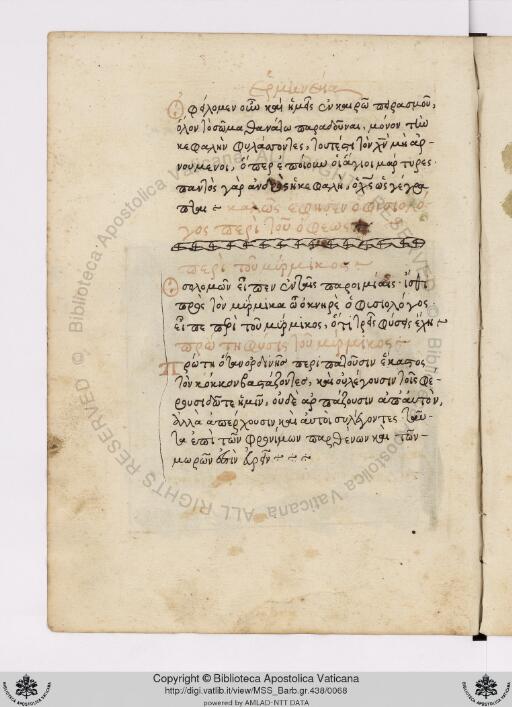 Ἑρμηνεία
Ὀφείλομεν οὖν καὶ ἡμεῖς ἐν καιρῷ πειρασμοῦ,
ὅλον τὸ σῶμα θανάτω παραδοῦναι, μόνον τὴν
κεφαλὴν φυλάττοντες, τουτέστι τὸν χν μὴ ἀρ-
νουμενοι, ὅπερ ἐποίουν οἱ ἅγιοι μάρτυρες.
παντὸς γὰρ ἀνδρὸς ἡ κεφαλὴ, ὁ χς ὡς γέγρα
πται
καλῶς ἔφησεν ὁ φισιολό
γος περὶ τοῦ ὄφεως
περὶ τοῦ μύρμικος
Ὁ σολομῶν εἶπεν ἐν ταῖς παροιμίαις. ἴσθι
πρὸς τὸν μύρμικα ὦ ὀκνηρὲ ὁ φισιολόγος
εἶπε περὶ τοῦ μύρμικος, ὅτι τρεῖς φύσεις ἔχει
πρώτη φυσις τοῦ μύρμικος
Πρώτη περιπατοῦσιν ἕκαστος
τὸν κόκκον βαστάζοντες, καὶ οὐ λέγουσιν τοῖς φέ-
ρουσι δότε ἡμῖν, οὐδὲ ἁρπάζουσιν ἀπ' αὐτῶν,
ἀλλὰ ἀπέρχουσιν καὶ αὐτοὶ συλλέγοντες. ταῦ-
τα ἐπὶ τῶν φρονίμων παρθένων καὶ τῶν
μωρῶν ἐστὶν εὑρεῖν
Copyright © Biblioteca Apostolica Vaticana
http://digi.vatlib.it/view/MSS_Barb.gr.438/0068
powered by AMLAD-NTT DATA
Biblioteca Apostolica Vaticana ALL RIGHTS RESERVED ©